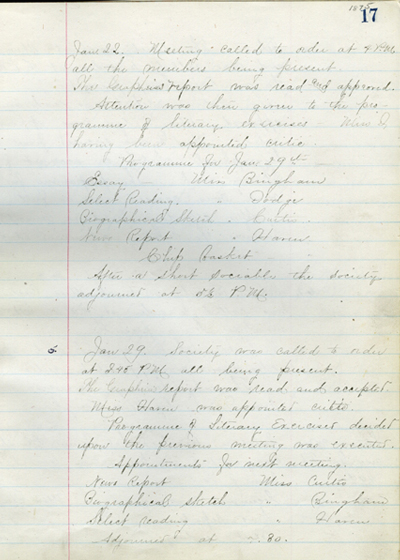 1895
17
Jan 22. Meeting called to order at 4 P.M.
all the members being present.
The Graphic's report was read and approved.
Attention was then given to the pro-
gramme of literary exercises Miss D.
having been appointed critic.
Programme for Jan 29th
Essay - Miss Bingham
Select Reading. " Dodge
Biographical Sketch. " Curtis
News Report " Haven
Chip Basket
After a short sociable the society
adjourned at P.M.
Jan 29. Society was called to order
at P.M. all being present.
The Graphic's report was read and accepted
Miss Haven was appointed critic.
Programme of Literary Exercises decided
upon the previous meeting was executed.
Appointments for next meeting.
News Report Miss Curtis
Biographical sketch " " Bingham
Select reading " Haven
Adjourned at